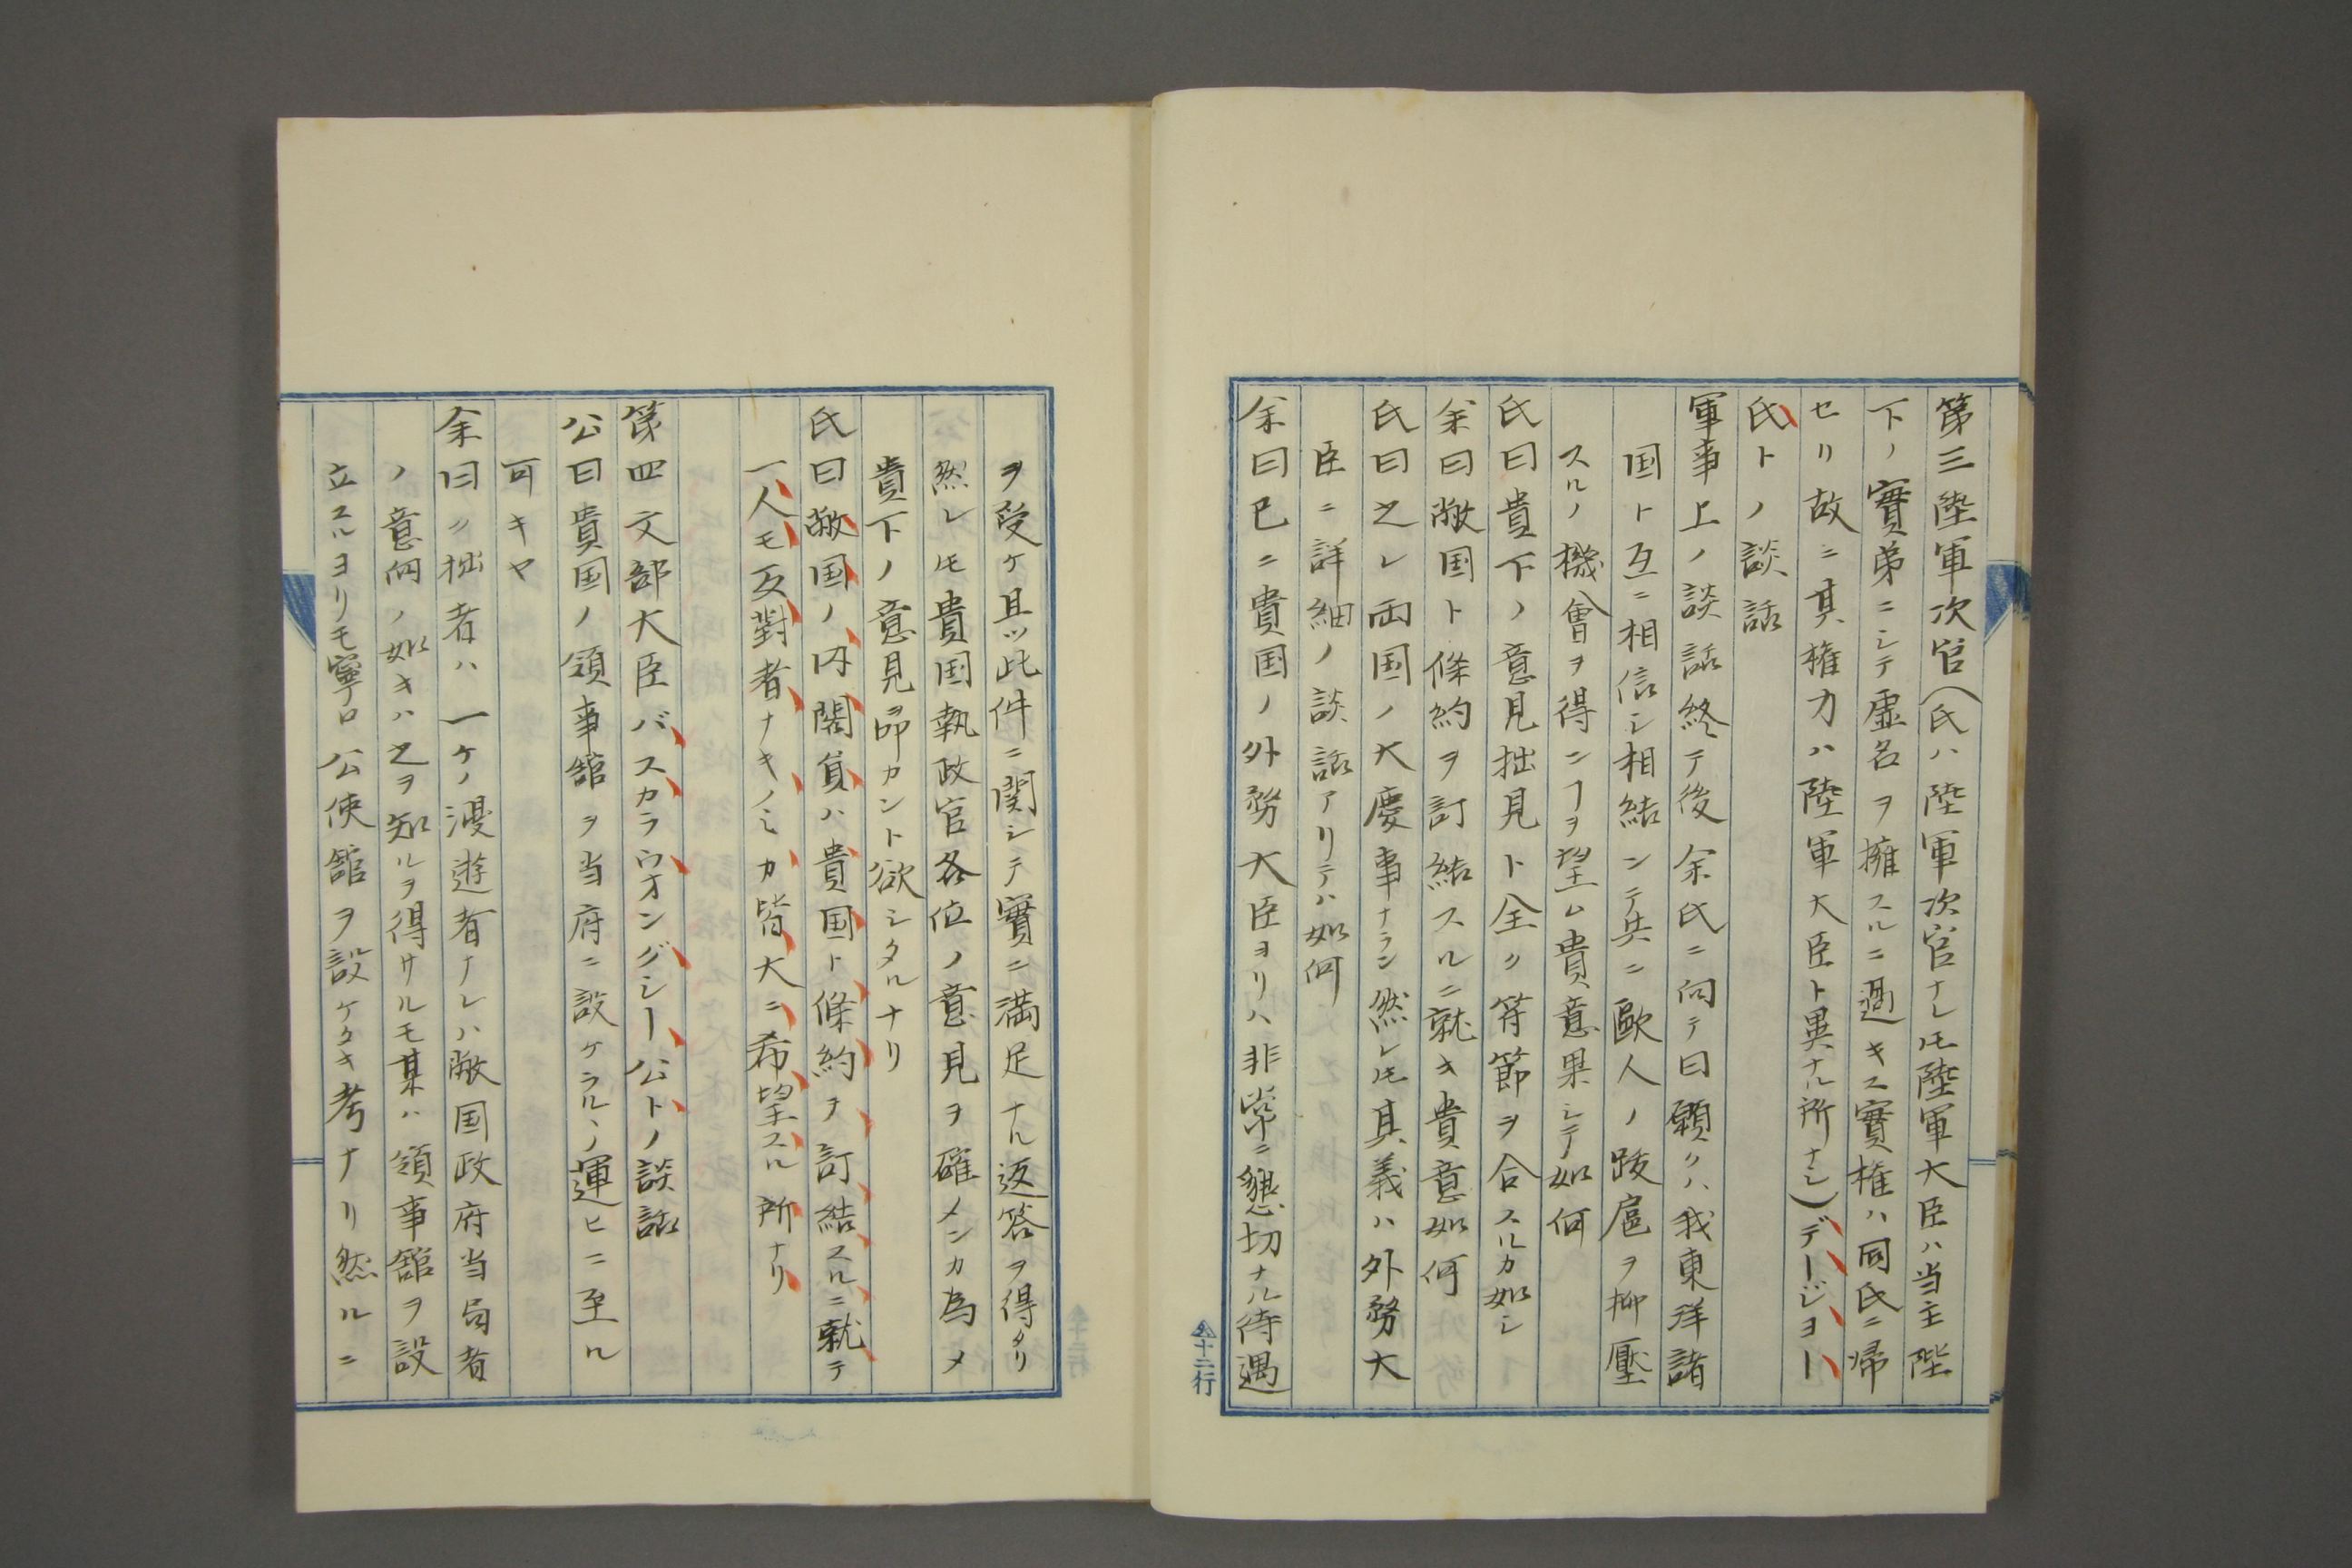 第三陸軍次官(氏ハ陸軍次官ナレ𪜈陸軍大臣ハ当主陛
下ノ實弟ニシテ虚名ヲ擁スルニ過キス實権ハ同氏ニ帰
セリ故ニ其権力ハ陸軍大臣ト異ナル所ナシ)デージヨー
氏トノ談話
軍事上ノ談話終テ後余氏ニ向テ曰願クハ我東洋諸
国ト互ニ相信シ相結ンテ共ニ歐人ノ跋扈ヲ抑壓
スルノ機會ヲ得ンヿヲ望ム貴意果シテ如何
氏曰貴下ノ意見拙見ト全ク符節ヲ合スルカ如シ
余曰敝国ト條約ヲ訂結スルニ就キ貴意如何
氏曰之レ両国ノ大慶事ナラン然レ𪜈其義ハ外務大
臣ニ詳細ノ談話アリテハ如何
余曰已ニ貴国ノ外務大臣ヨリハ非常ニ懇切ナル待遇
十二行
ヲ受ケ且ツ此件ニ関シテ實ニ満足ナル返答ヲ得タリ
然レ𪜈貴国執政官各位ノ意見ヲ確メンカ為メ
貴下ノ意見ヲ叩カント欲シタルナリ
氏曰敝国ノ内閣員ハ貴国ト條約ヲ訂結スルニ就テ
一人モ反對者ナキノミカ皆大ニ希望スル所ナリ
第四文部大臣バスカラウオングシー公トノ談話
公曰貴国ノ領事舘ヲ当府ニ設ケラルヽノ運ヒニ至ル
可キヤ
余曰ク拙者ハ一ケノ漫遊者ナレハ敝国政府当局者
ノ意向ノ如キハ之ヲ知ルヲ得サルモ某ハ領事舘ヲ設
立スルヨリモ寧ロ公使舘ヲ設ケタキ考ナリ然ルニ